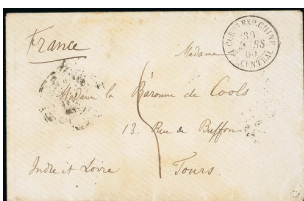 France
Madame
Madame la Baronne de Cools
13. Rue de Buffon
Indre et Loire
Tours.